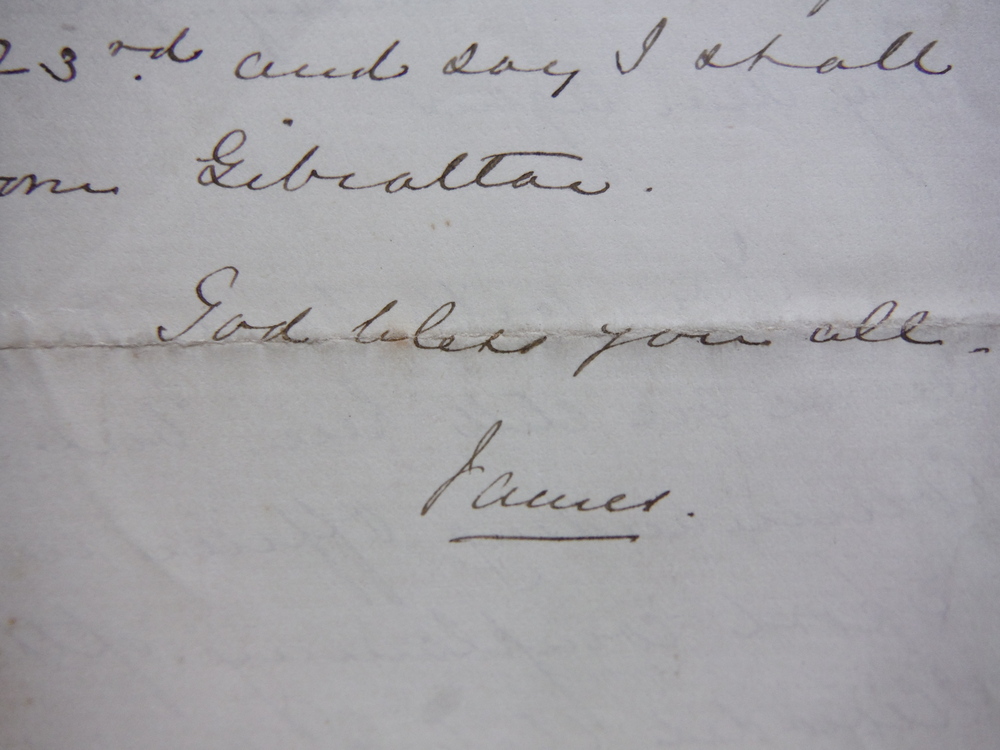 23rd. and say I shall
Gibraltar.
God bless you all.
James.